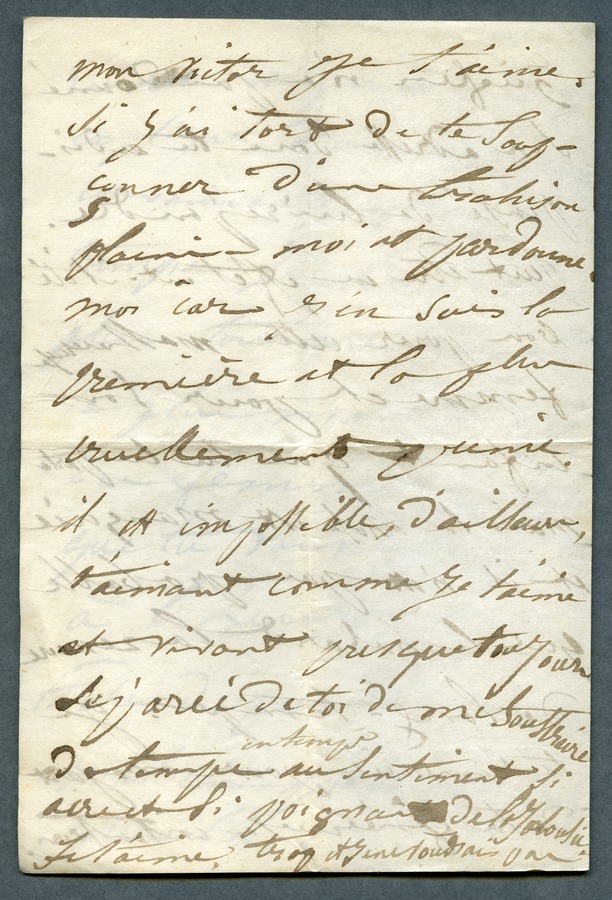 mon victor je t'aime.
Si j'ai tort de te soup-
çonner d'une trahison
plains-moi et pardonne-
moi car j'en suis la
première et la plus
cruellement punie.
il est impossible, d'ailleurs,
t'aimant comme je t'aime
et vivant presque toujours
séparée de toi de me soustraire
de temps en temps au sentiment si
acre et si poignant de la jalousie.
Je t'aime trop et je ne voudrais pas